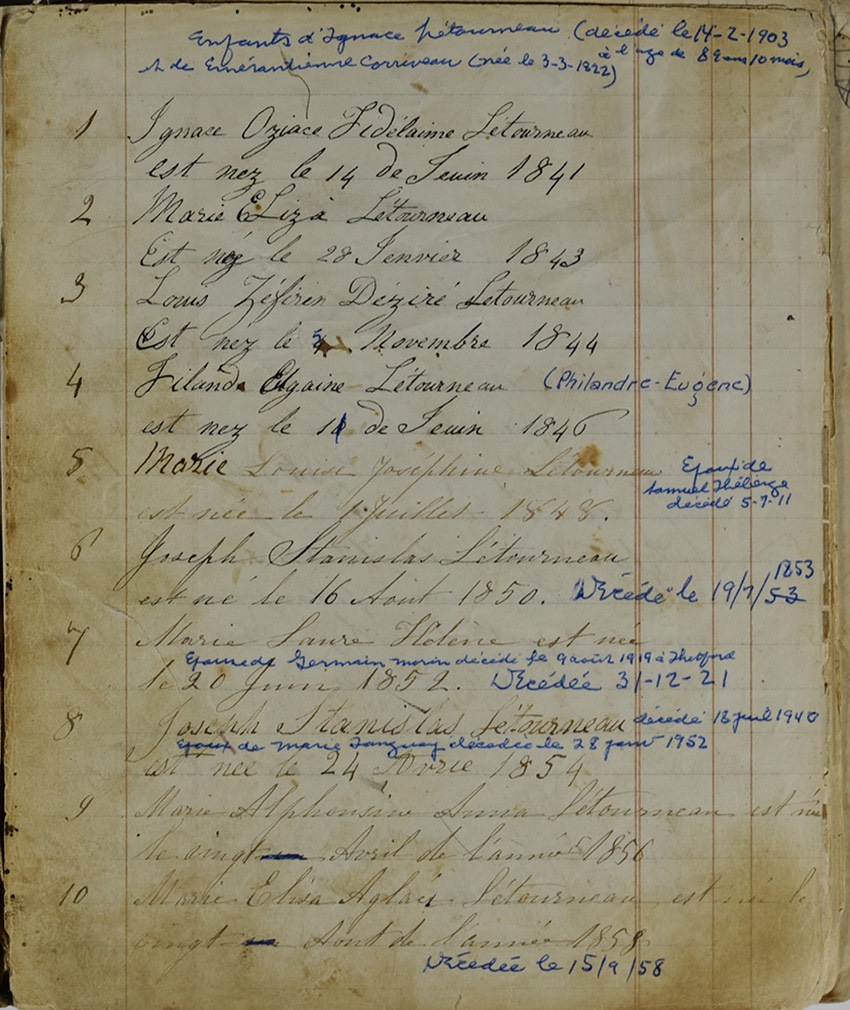 Enfants d'Ignace Létourneau (décédé le 14-2-1903
à l'age de 82 ans 10 mois)
et de Emérandienne Corriveau (née le 3-3-1822)
1 Ignace Oziace Fidélaime Létourneau
est nez le 14 de Jeuin 1841
2 Marie Eliza Létourneau
Est néz le 28 Jenvier 1843
3 Louis Zéfirin Déziré Letourneau
Est néz le 5 Novembre 1844
4 Filande Elgaine Létourneau (Philandre-Eugène)
est nez le de Jeuin 1846
5 Marie Louise Joséphine Létourneau
Epoux de
Samuel Théberge
décédé 5-7-11
est née le 1 Juillet 1848.
6 Joseph Stanislas Létourneau
1853
est né le 16 Aout 1850. Décédé le 19/7/53
7 Marie Laure Helène est née
Epouse de Germain Morin décédé le 9 août 1919 à Thetford
le 20 Juin 1852. Décédée 31-12-21
8 Joseph Stanislas Létourneau décédé 18 1940
Epoux de Marie Tanguay décédée le 28 janv 1952
est née le 24 Avrie 1854
9 Marie Alphonsine Anna Létourneau est née
le vingt Avril de l'année 1856
10 Marie Elisa Aglaé Létourneau est née le
vingt Aout de l'année 1858
Décédée le 15/9/58